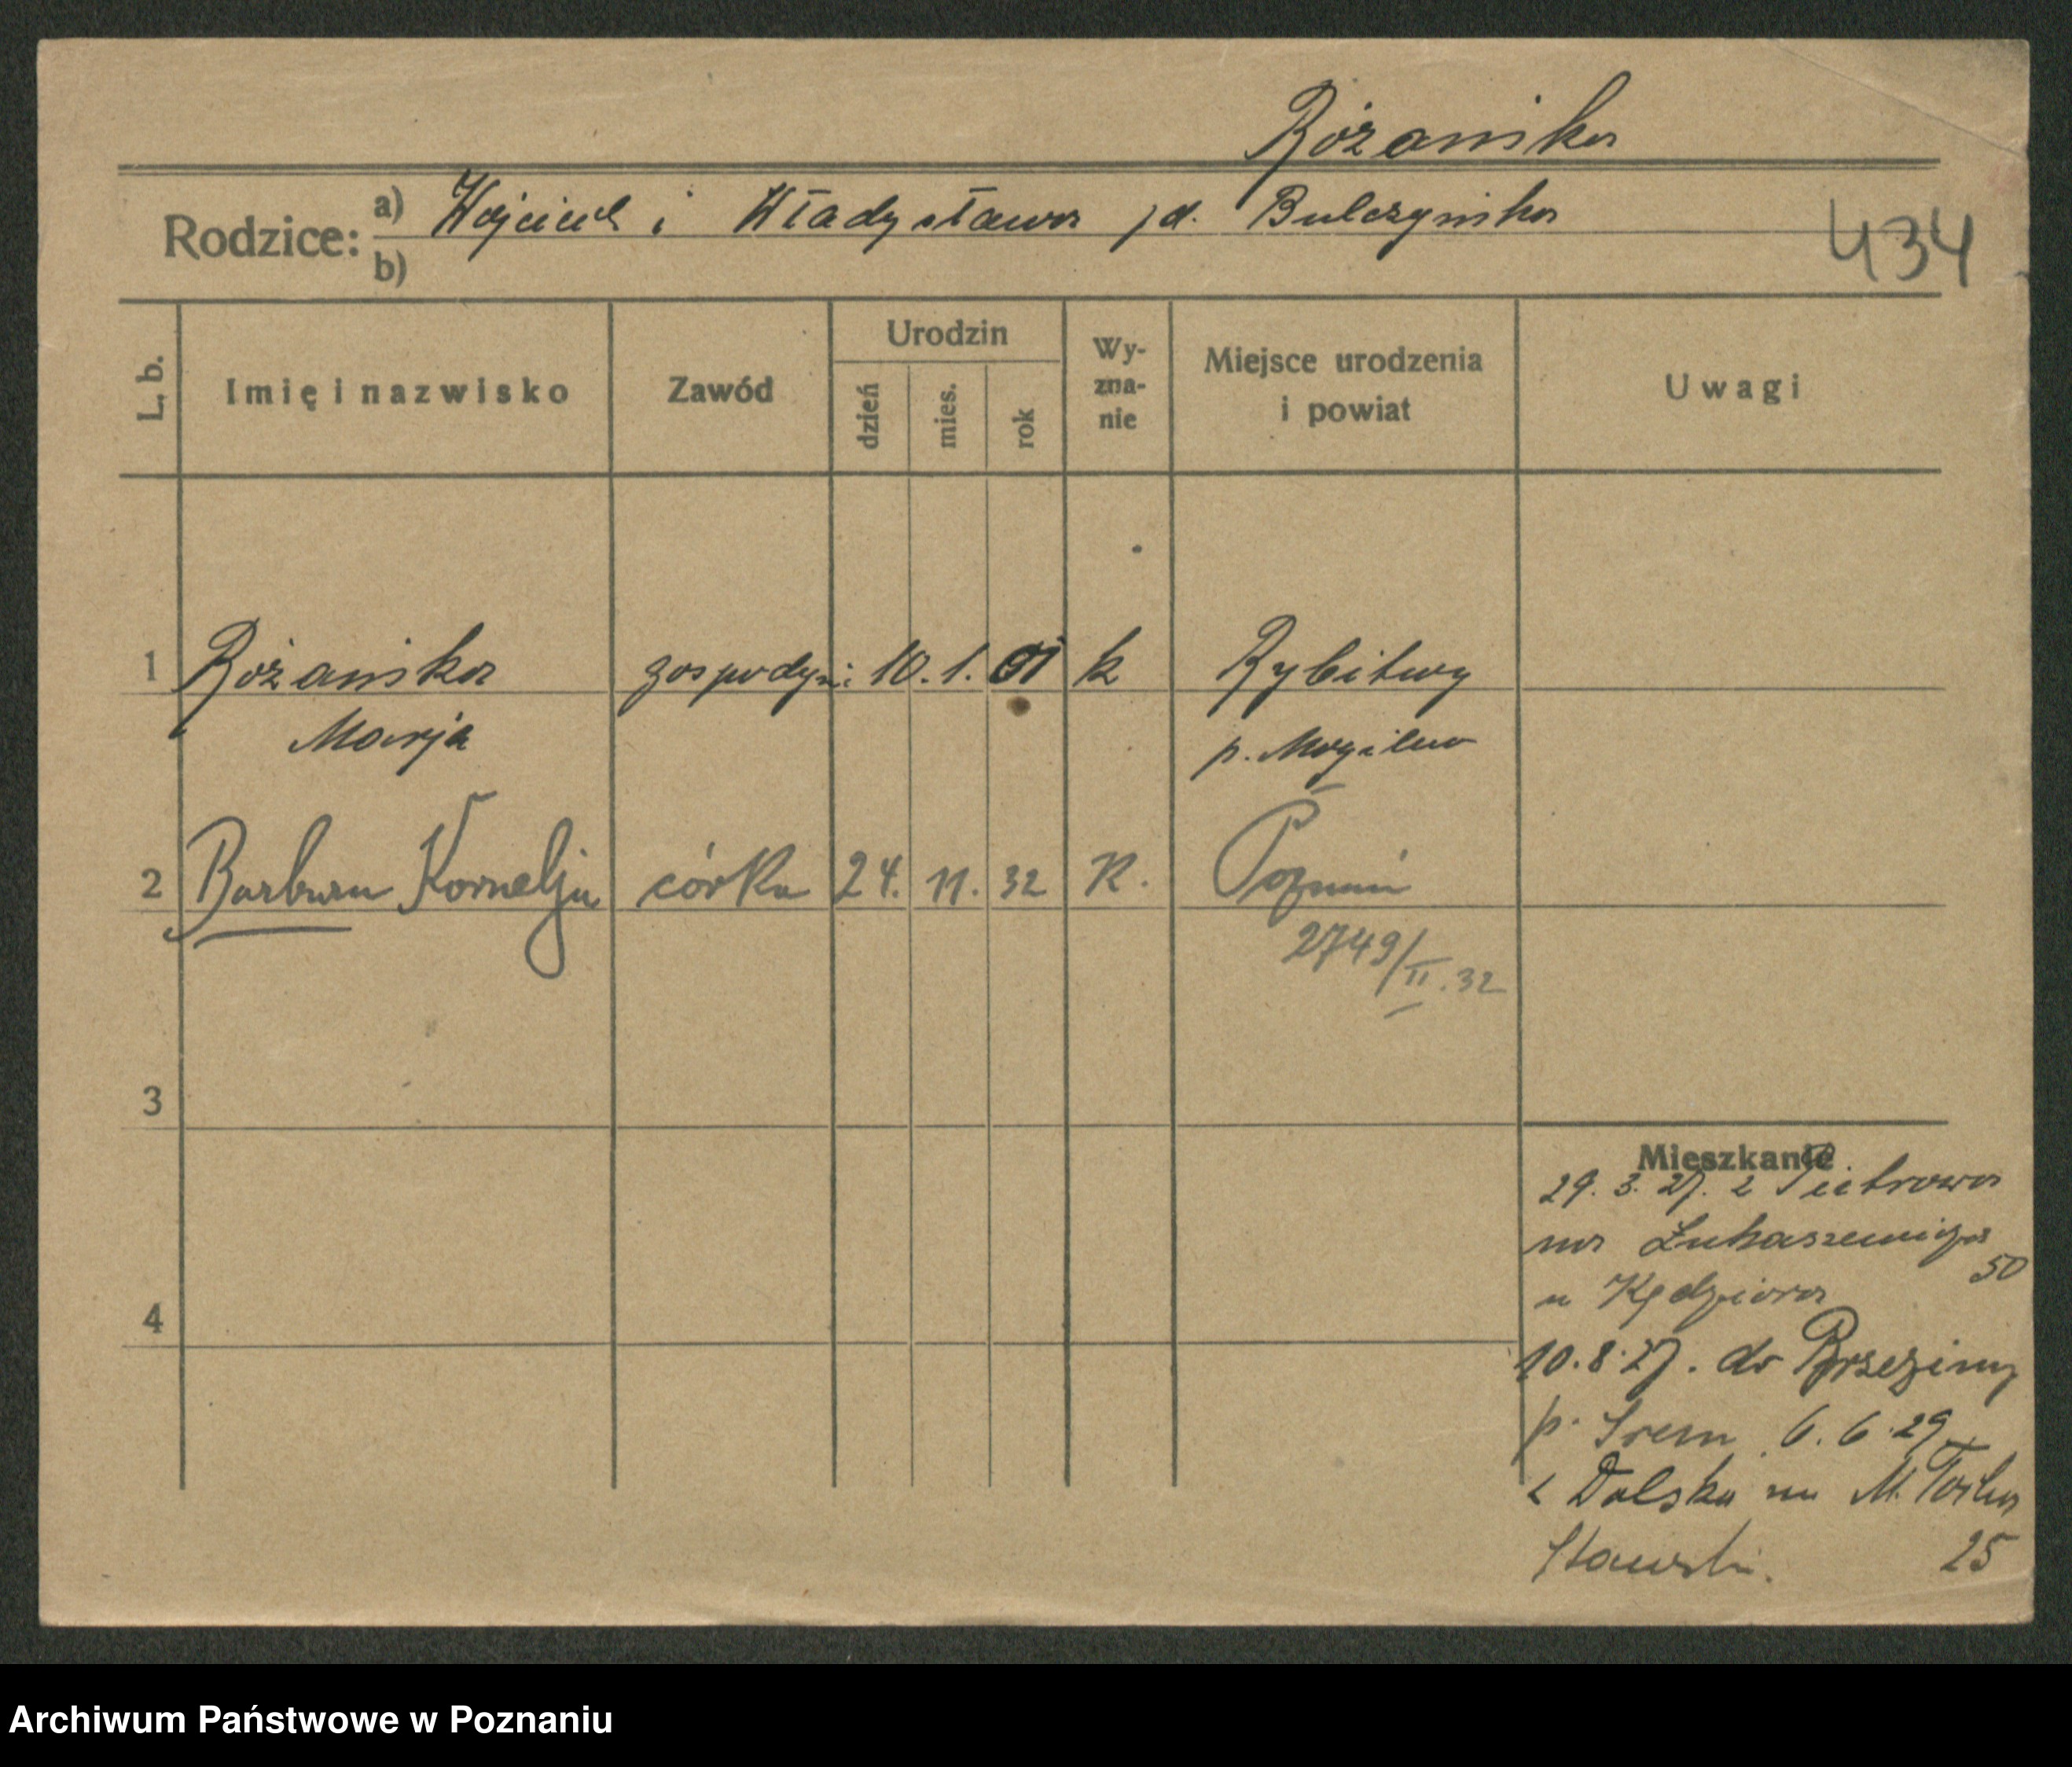 Różańska
Rodzice: a) Wojciech i Władysława / d. Bulczyńska
b)
434
L. b.
Imię i nazwisko
Zawód
Urodzin
dzień
mies.
rok
Wy-
zna-
nie
Miejsce urodzenia
i powiat
Uwagi
1 Różańska gospodyni 10. 1. 01 k Rybitwy
Marja p. Mogilno
2 Barbara Kornelja córka 24. 11. 32 K. Poznań
2749/II. 32
3
4
Mieszkanie
29. 3. 27. z Piotrowa
na Łukaszewicza
50
u Kędziora
10. 8. 27. do Brzeziny
p. Śrem. 6. 6. 29
z Dolska na M. Focha
Stawski. 25
Archiwum Państwowe w Poznaniu